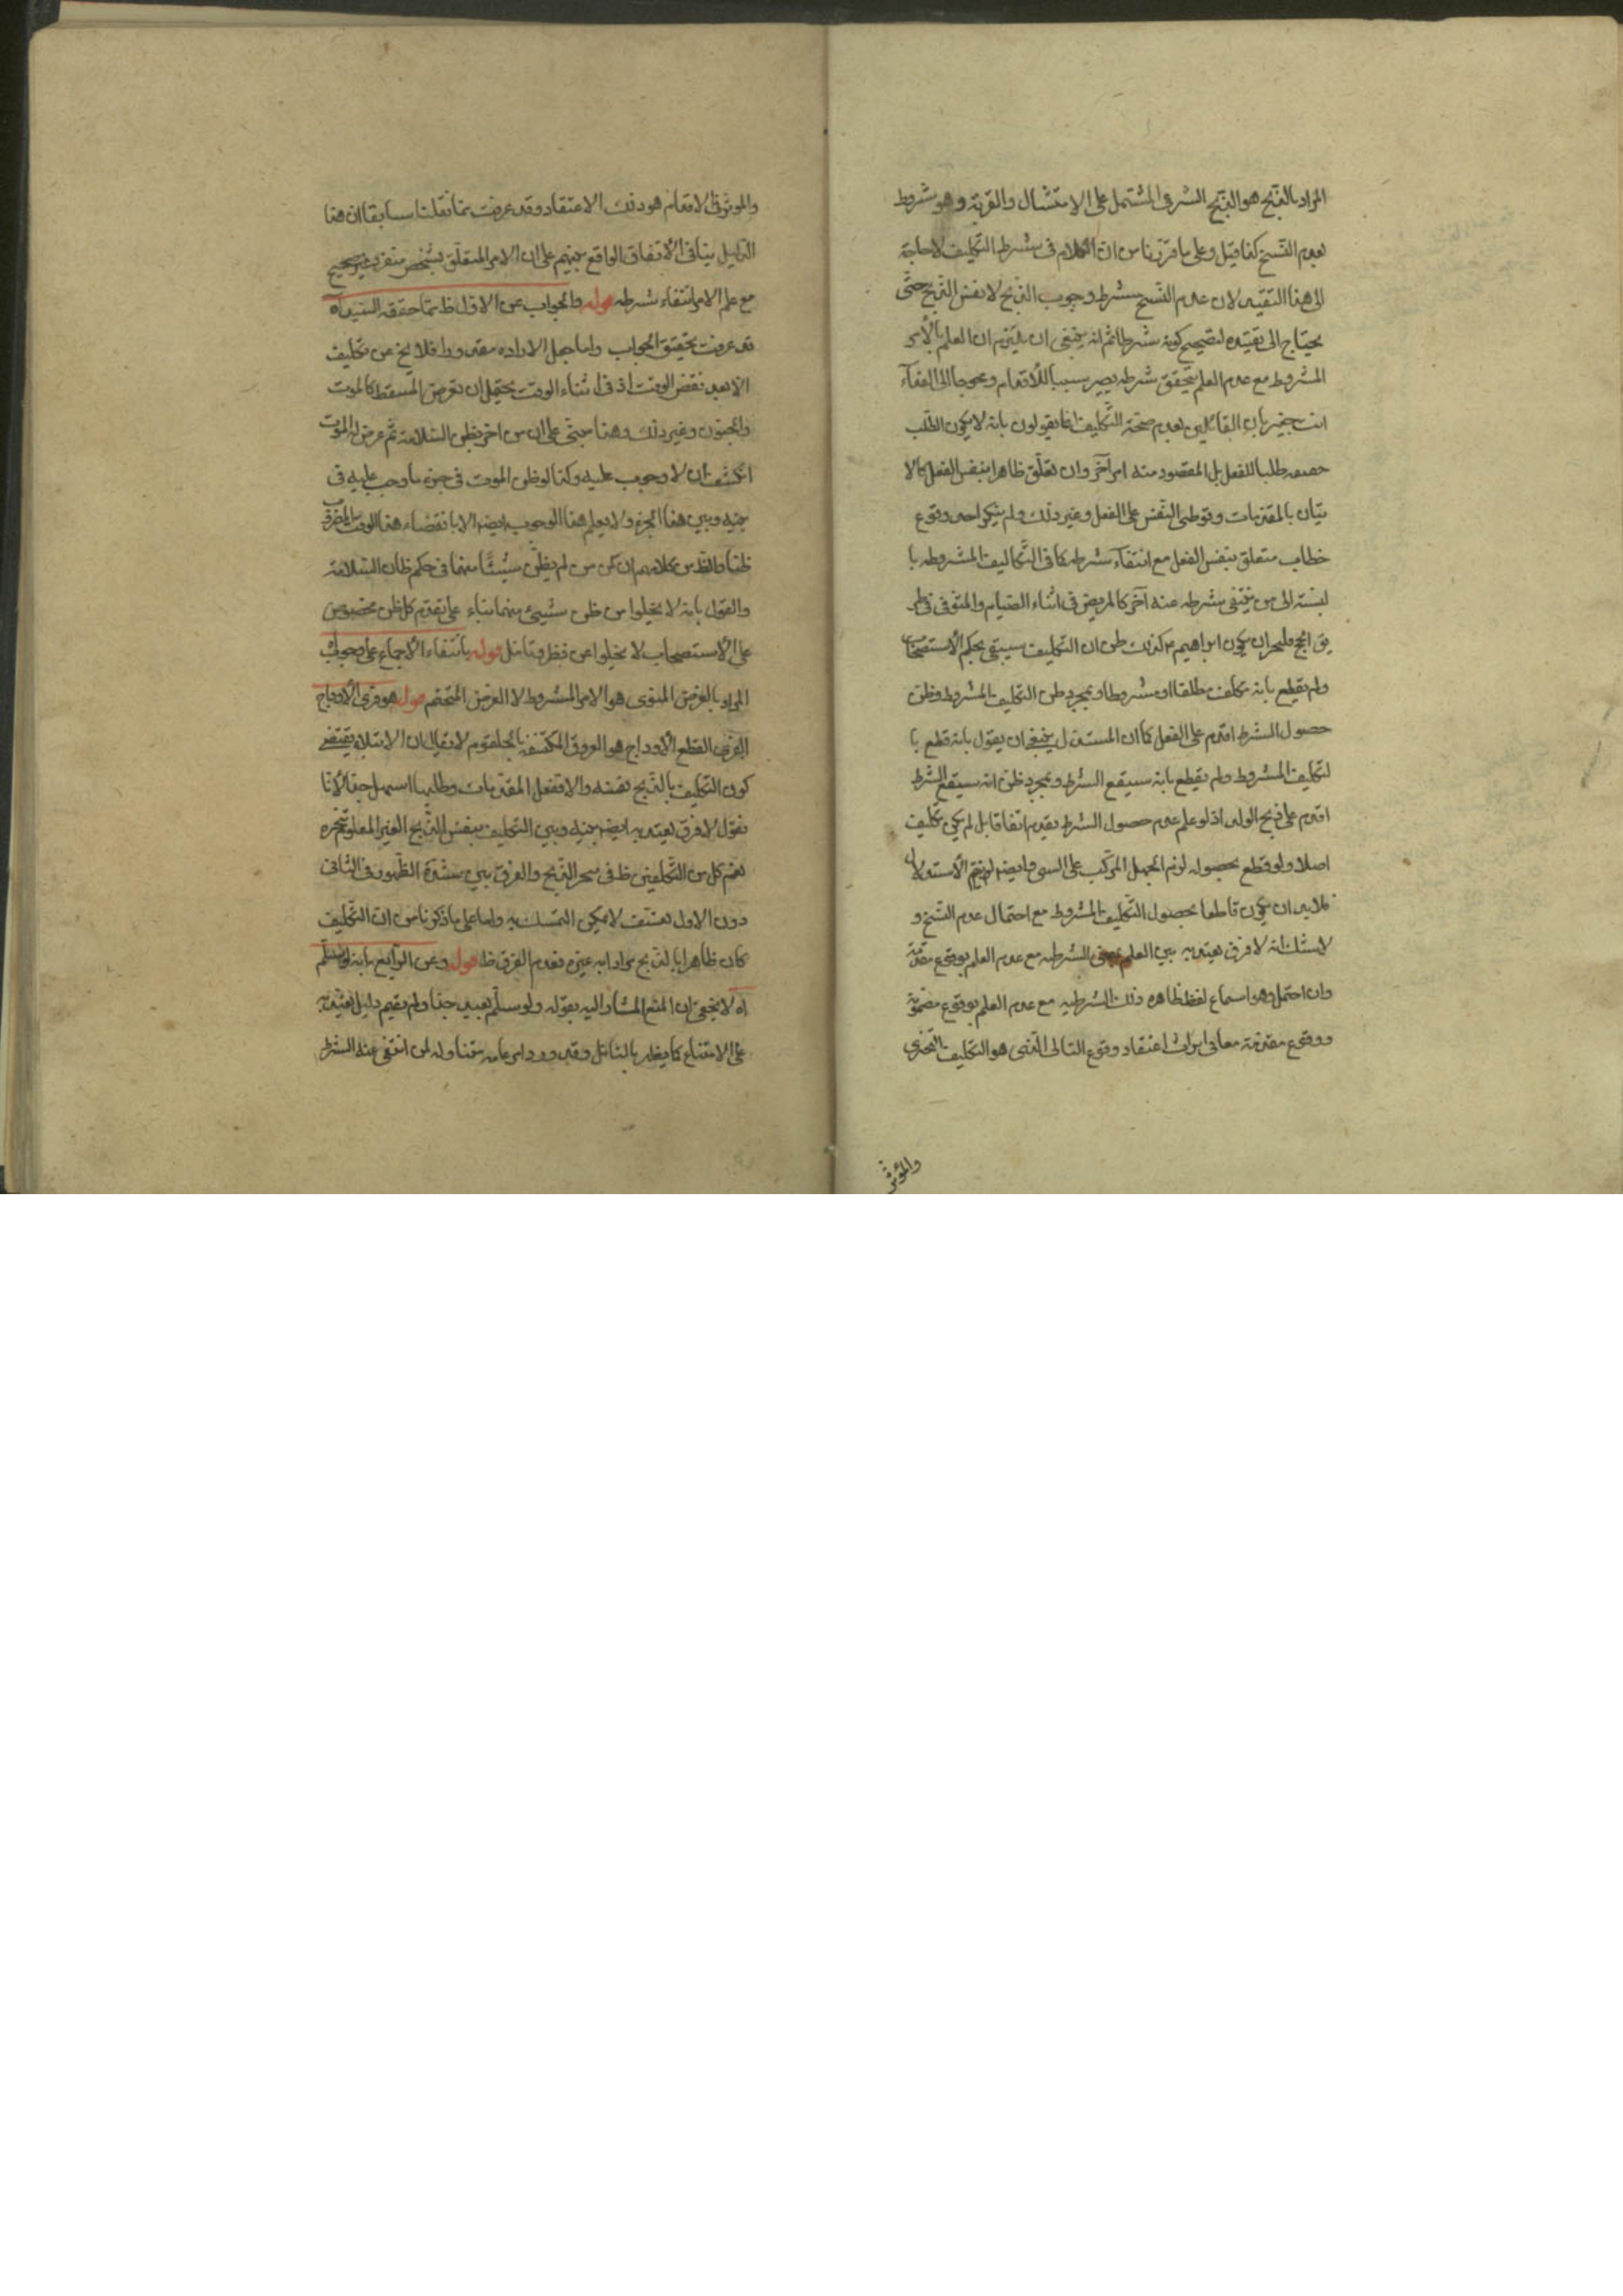 المراد بالذبح هو الذبح الشرعى المشتمل على الامتثال والقربة وهو مشروط
بعدم النسخ كذا قيل وعلى ما قررنا من ان الكلام فى شرط التكليف لا حاجة
الى هذا التقييد لان عدم النسخ شرط وجوب الذبح لا نفس الذبح حتى
يحتاج الى تقييده لتصحيح كونه شرطا ثم انه ينبغى ان يلتزم ان العلم بالأمر
المشروط مع عدم العلم بتحقق شرطه يصير سببا للاقدام ومحوجا الى الفداء
انت خبير بان القائلين بعدم صحة التكليف انما يقولون بانه لا يكون الطلب
طلبا للفعل بل المقصود منه امر آخر وان تعلق ظاهرا بنفس الفعل كالا
تيان بالمقدمات وتوطين النفس على الفعل وغير ذلك ولم ينكر احد وقوع
خطاب متعلق بنفس الفعل مع انتفاء شرطه كما فى التكاليف المشروطه با
لنسبة الى من ينتفى شرطه عنه آخر كالمريض فى اثناء الصيام والمتوفى فى
الحج ان يكون ابراهيم كذلك ظن ان التكليف سيبقى بحكم الاستصحاب
ولم يقطع بانه مكلف مطلقا او مشروطا وبمجرد ظن التكليف المشروط وظن
حصول الشرط اقدم على الفعل كما ان المستدل ينبغى ان يقول بانه قطع با
لتكليف المشروط ولم يقطع بانه سيقع الشرط وبمجرد ظن انه سيقع الشرط
اقدم على ذبح الولد اذ لو علم عدم حصول الشرط بعدم لم يكن تكليف
اصلا ولو قطع بحصوله لزم الجهل المركب على النبى وايضا لم يتم الاستدلال
فلابد ان يكون قاطعا بحصول التكليف المشروط مع احتمال عدم النسخ و
لا شك انه لا فرق يعتد به بين العلم الشرطيه مع عدم العلم بوقوع مقدمة
وان احتمل وهو استماع لفظ ظاهره ذلك الشرطيه مع عدم العلم بوقوع
ووقوع مقدمة معا فى ايراث اعتقاد وقوع التالى الذى هو التكليف
والموثر
والموثر فى الاقدام هو ذلك الاعتقاد وقد عرفت مما نقلنا سابقا ان هذا
الدليل ينافى الاتفاق الواقع بينهم على ان الامر المتعلق بشخص منفرد غير صحيح
مع علم الامر انتفاء شرطه قوله والجواب عن الاول ظ مما حققه السيد آه
قد عرفت تحقيق الجواب واما جعل الاراده فلا يخ عن تكليف
الا بعد نقض الوقت اذ فى اثناء الوقت يحتمل ان تعرض المسقط كالموت
والجنون وغير ذلك وهذا مبنى على ان من اخر بظن السلامة ثم عرض له الموت
انكشف ان لا وجوب عليه وكذا لو ظن الموت فى جزء ما وجب عليه فى
بينه وبين هذا الجزء ولا يعلم هذا الوجوب ايضا الا بانقضاء هذا الوقت
ظنا والظ من كلامهم ان كل من لم يظن شيئا منهما فى حكم ظان السلامة
والقول بانه لا يخلوا من ظن شيئ منهما بناء على تقدم كل ظن مخصوص
على الاستصحاب لا يخلوا عن نظر وتامل قوله بانتفاء الاجماع على وجوب
المراد بالفرض المنوى هو الامر المشروط لا الفرض المتحتم قوله هو فرى الاوداج
الفرى القطع الاوداج هو العروق المكتنفة بالحلقوم لا يقال ان الابتلاء يقتضى
كون التكليف بالذبح نفسه والا ففعل المقدمات وطلبها اسهل جدا لانا
نقول لا فرق يعتد به ايضا بينه وبين التكليف بنفس الذبح الغير المعلوم
نعم كل من التكليفين ظ فى الذبح والفرق بين شدة الظهور فى الثانى
دون الاول تعسف لا يمكن التمسك به واما على ما ذكرنا من ان التكليف
كان ظاهرا بالذبح مرادا به غيره فعدم الفرق ظ قوله وعن الرابع بانه لو سلم
آه لا يخفى ان المنع المشار اليه بقوله ولو سلم بعيد جدا ولم يقم دليل يعتد به
على الامتناع كما يظهر بالتامل وقد ورد امر عام متناوله لمن انتفى عنه الشرط